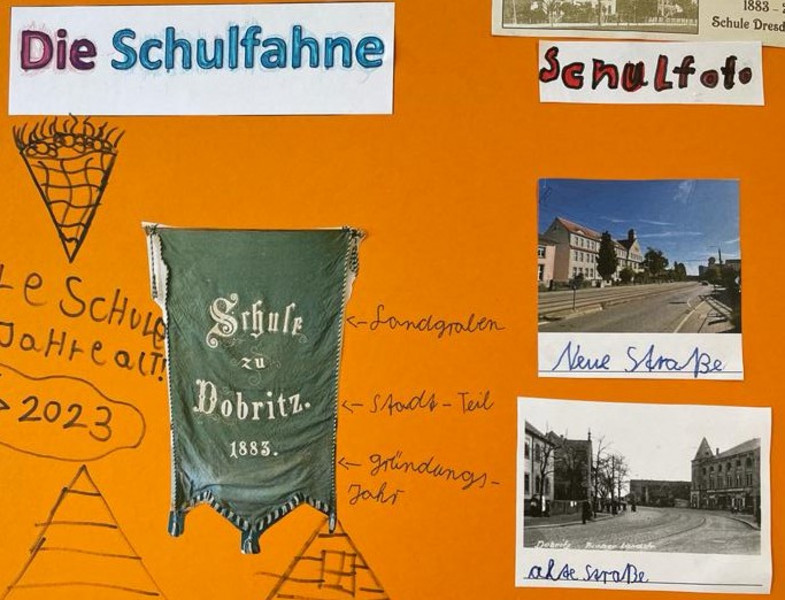 Die Schulfahne
1883 -
Schule Dresd
Schulfoto
Le Schule
Jahre alt!
> 2023
Schule
zu
Dobritz.
1883.
<- Landgraben
<- Stadt-Teil
<- gründungs-
Jahr
Neue Straße
Dobritz
alte Straße